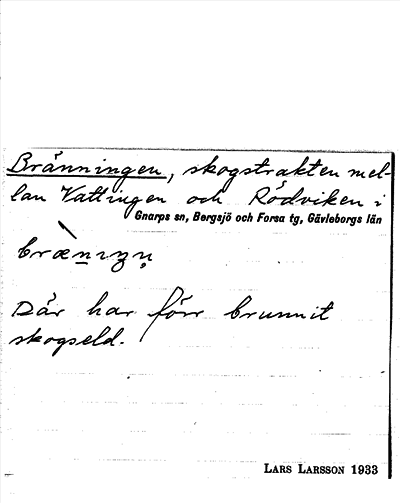 Bränningen, skogstrakten mel-
lan Vattingen och Rödviken i
Gnarps sn, Bergsjö och Forsa tg, Gävleborgs län
Där har förr brunnit
skogseld.
LARS LARSSON 1933